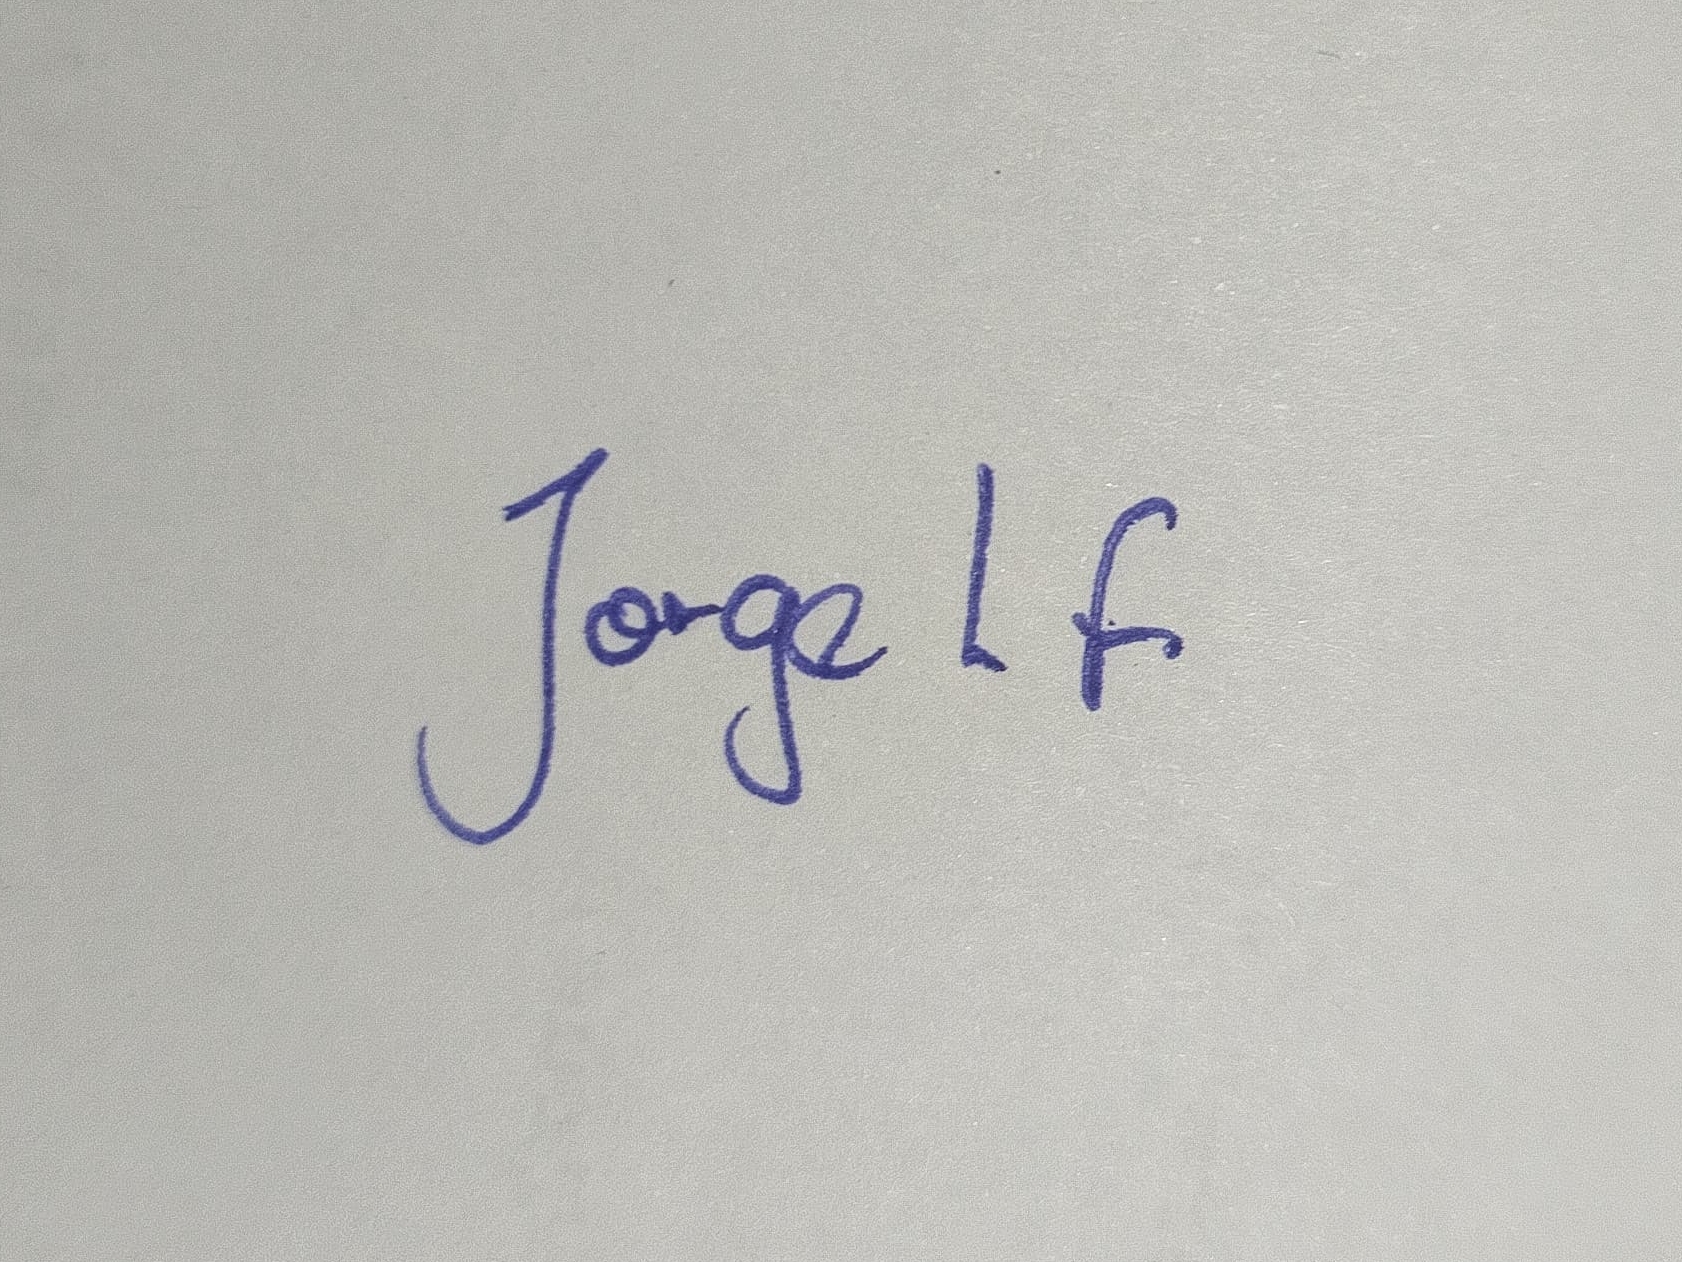 Jorge L f